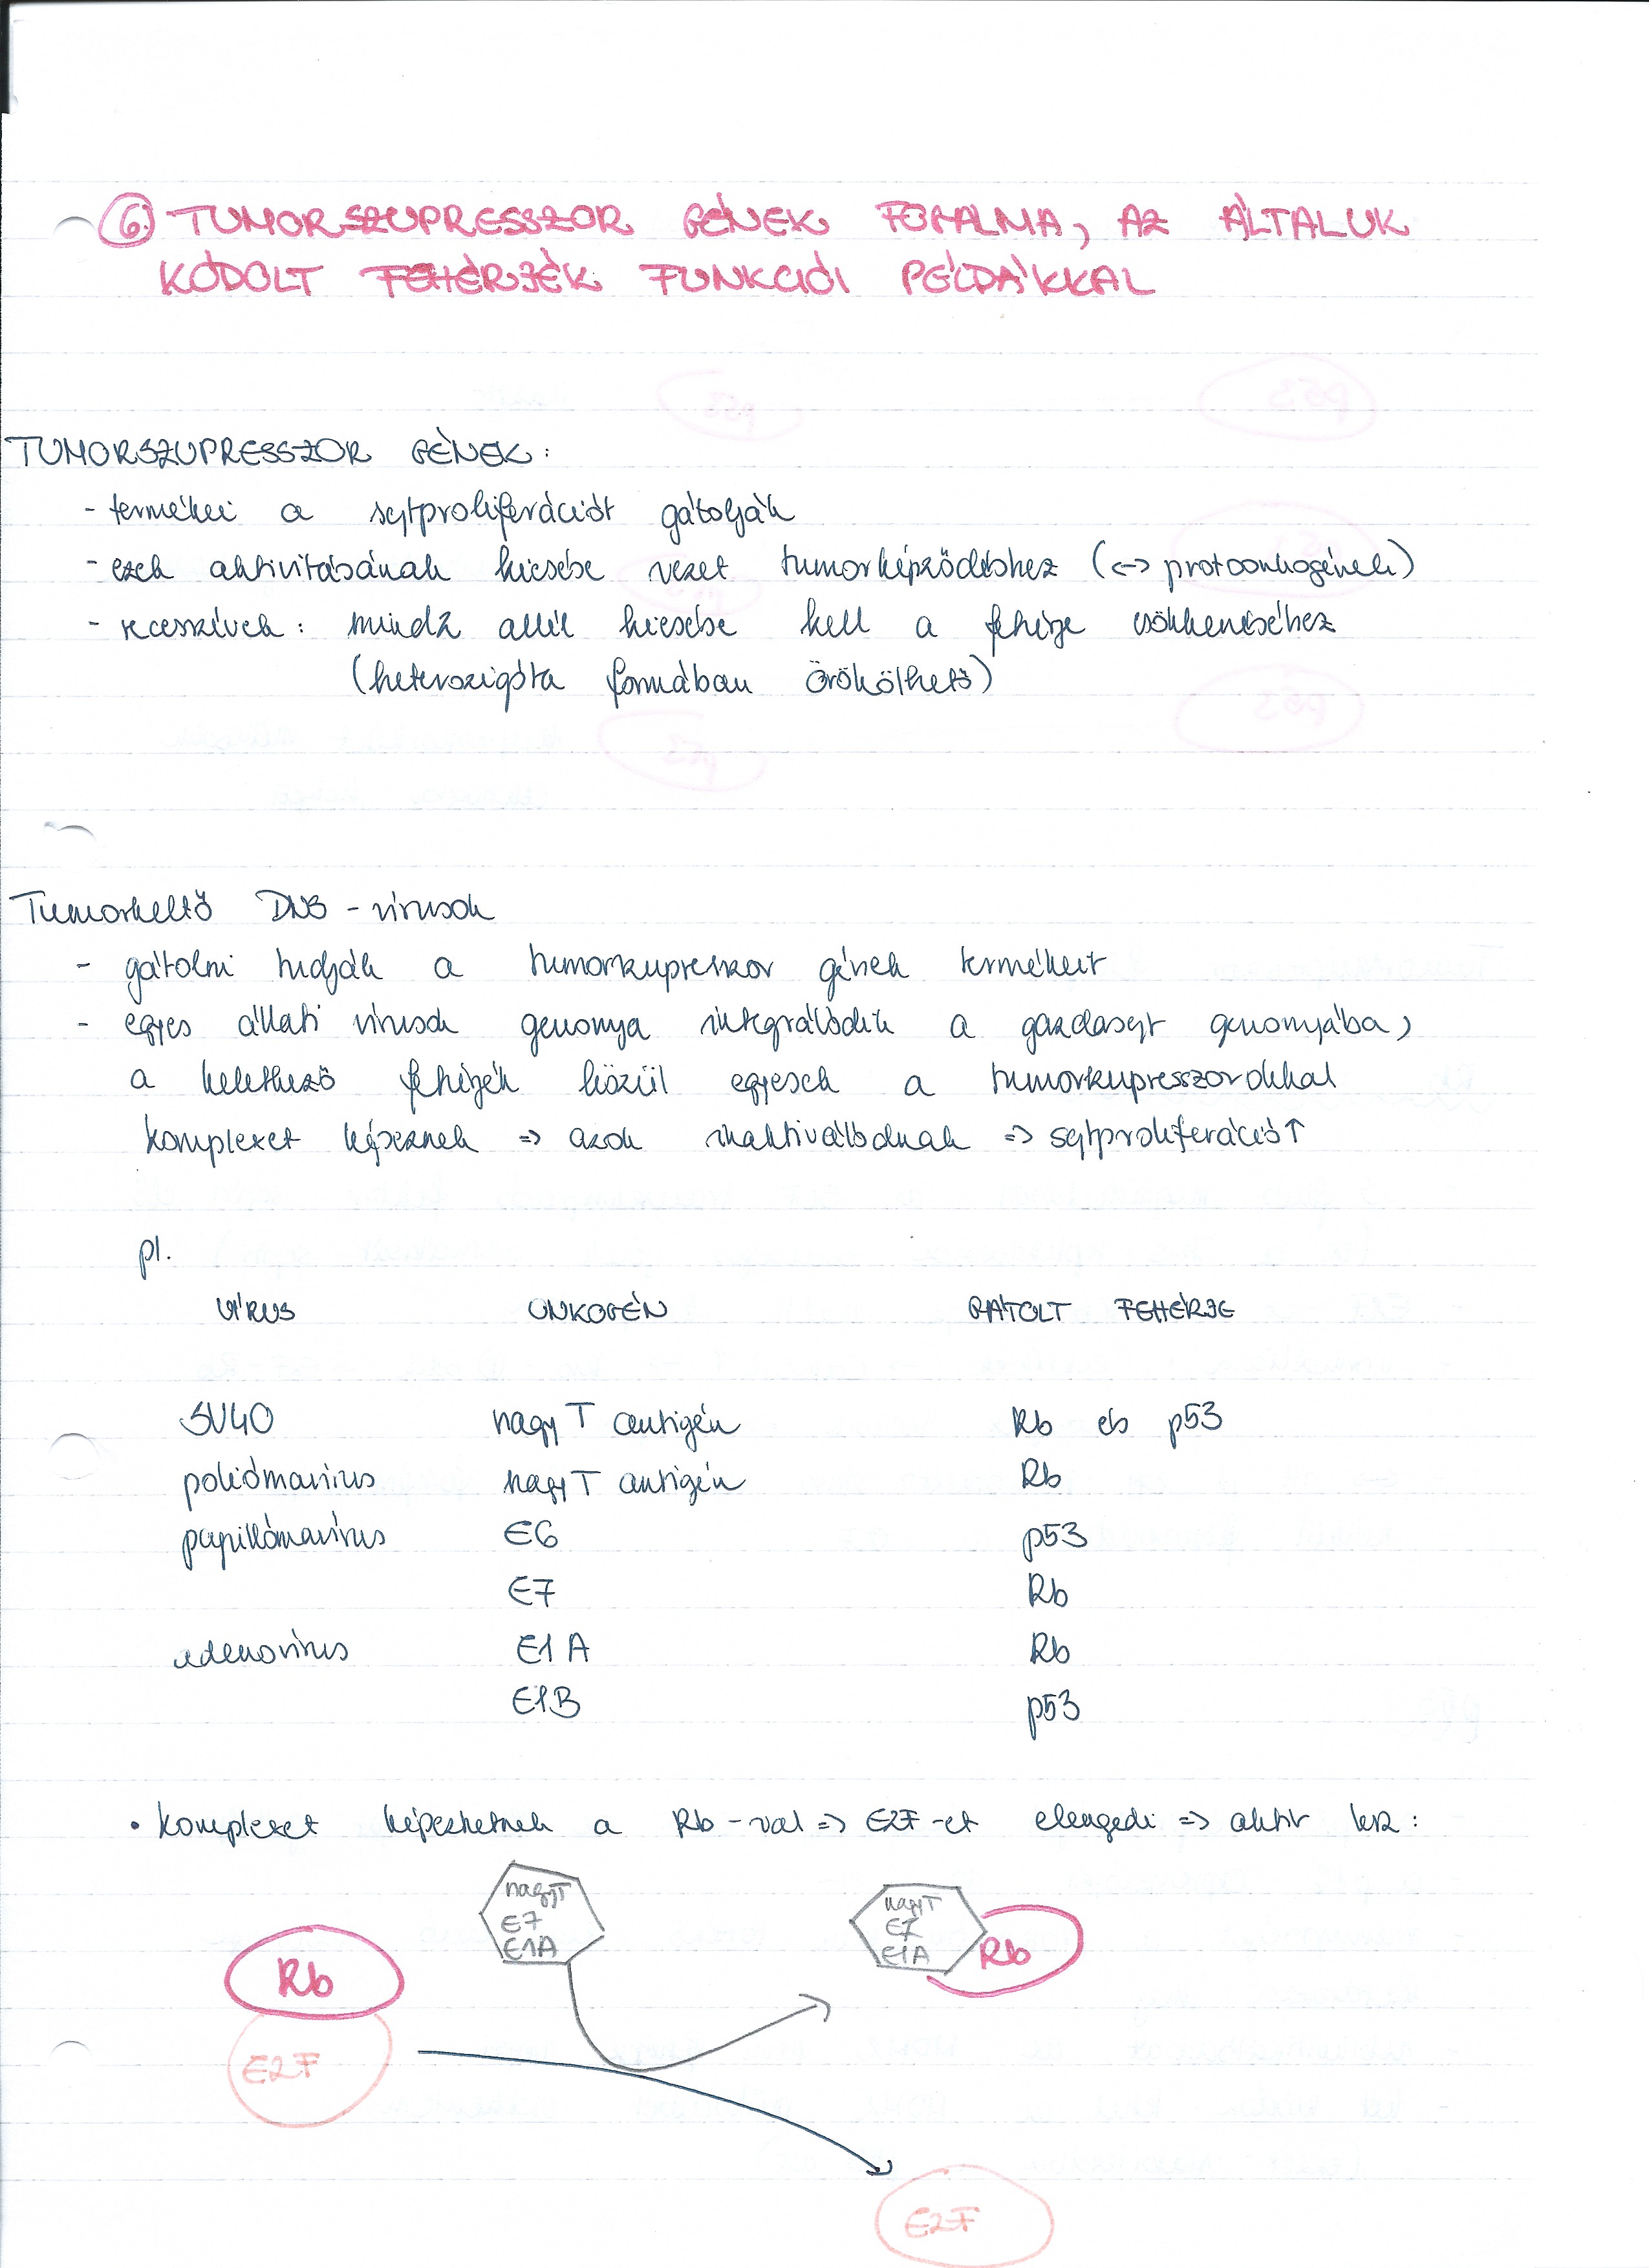 6. TUMORSZUPRESSZOR GÉNEK FOGALMA, AZ ÁLTALUK
KÓDOLT FEHÉRJÉK FUNKCIÓI PÉLDÁKKAL
TUMORSZUPRESSZOR GÉNEK:
- termékei a sejtproliferációt gátolják
- ezek aktivitásának kiesése vezet tumorképződéshez (<-> protoonkogének)
- recesszívek: mind2 allél kiesése kell a fehérje csökkenéséhez
(heterozigóta formában örökölhető)
Tumorkeltő DNS-vírusok
- gátolni tudják a tumorszupresszor gének termékeit
- egyes állati vírusok genomja integrálódik a gazdasejt genomjába,
a keletkező fehérjék közül egyesek a tumorszupresszorokkal
komplexet képeznek => azok inaktiválódnak => sejtproliferáció↑
pl.
VÍRUS ONKOGÉN GÁTOLT FEHÉRJE
SV40 nagy T antigén Rb és p53
poliómavírus nagy T antigén Rb
papillómavírus E6 p53
E7 Rb
adenovírus E1A Rb
E1B p53
• komplexet képezhetnek a Rb-val => E2F-et elengedi => aktív lesz:
nagyT
E7
E1A
nagyT
E7
E1A
Rb
Rb
E2F
E2F